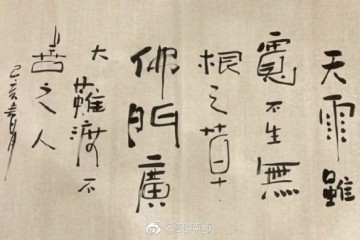 天雨雖
寬不生無
根之草
佛門廣
大難渡不
善之人
己亥